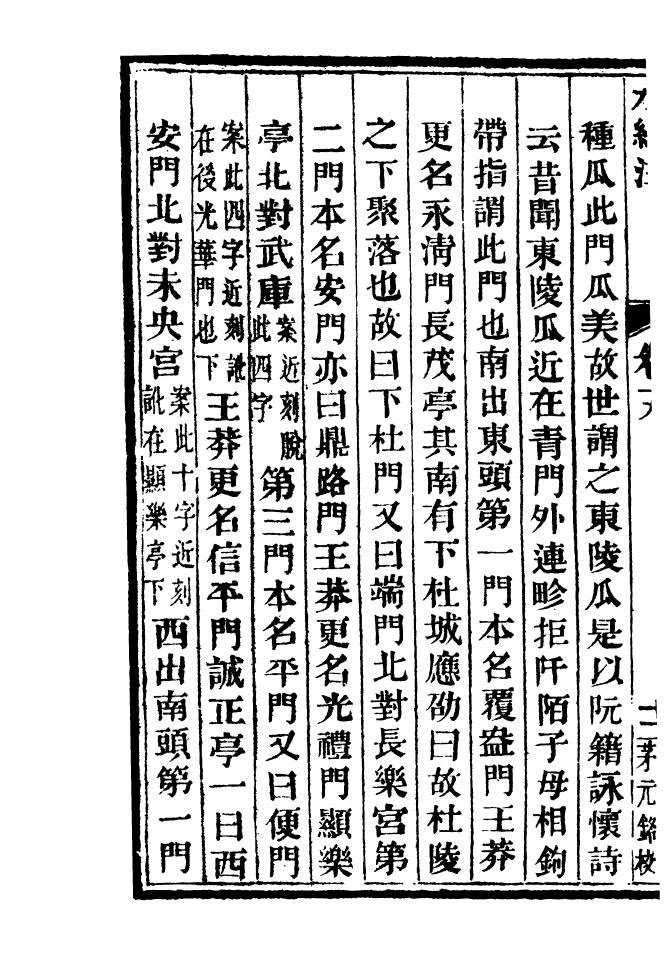 水經注 卷十九 十一 茅元銘校
種瓜此門瓜美故世謂之東陵瓜是以阮籍詠懷詩
云昔聞東陵瓜近在青門外連畛拒阡陌子母相鉤
帶指謂此門也南出東頭第一門本名覆盎門王莽
更名永清門長茂亭其南有下杜城應劭曰故杜陵
之下聚落也故曰下杜門又曰端門北對長樂宮第
二門本名安門亦曰鼎路門王莽更名光禮門顯樂
亭北對武庫案近刻脫此四字第三門本名平門又曰便門
案此四字近刻訛在後光華門也下王莽更名信平門誠正亭一曰西
安門北對未央宮案此十字近刻訛在顯樂亭下西出南頭第一門